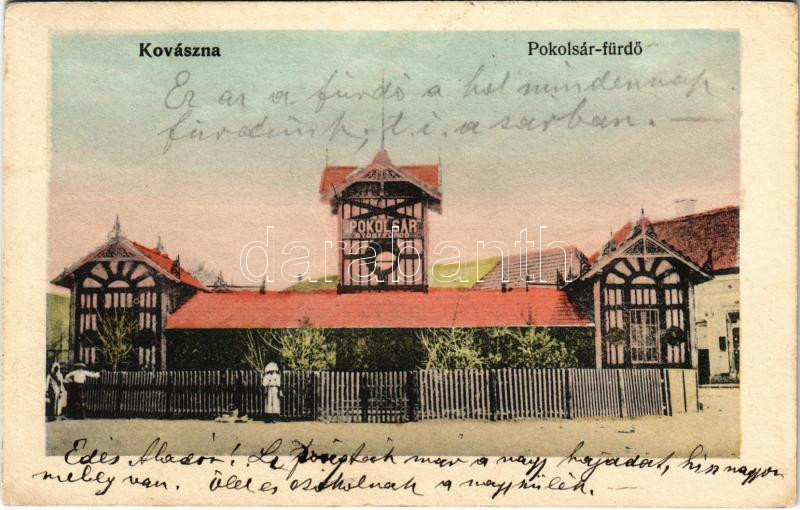 Kovászna
Pokolsár-fürdő
Ez az a fürdő a hol mindennap
fürdünk, t. i. a sárban. —
POKOLSÁR
GYÓGYFÜRDŐ
darabanth
Édes Aladár! már a nagy hajadat, hisz nagyon
meleg van. Ölel és csókolnak a nagyszülék. —